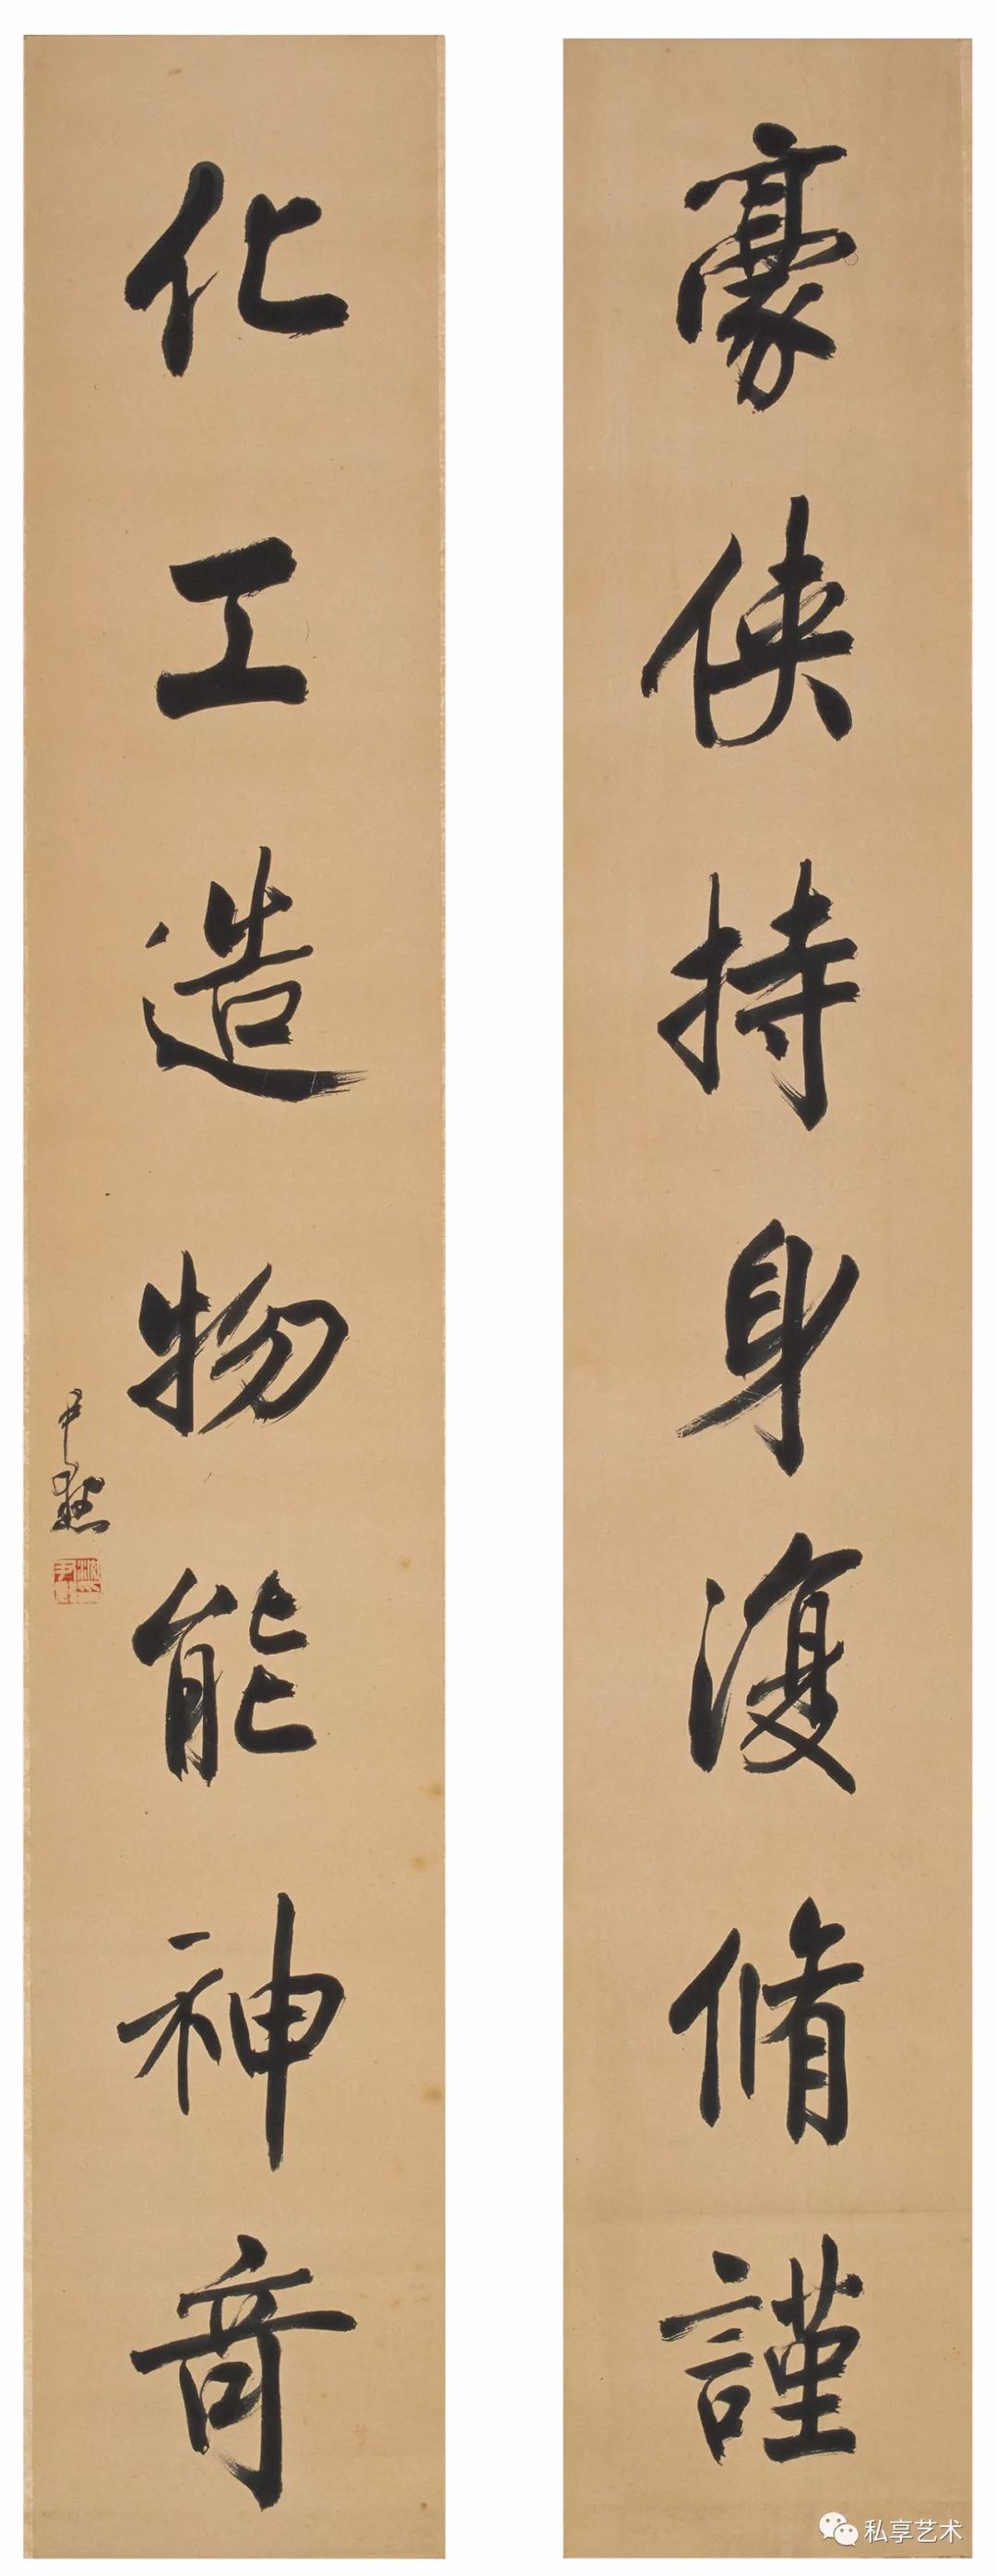 豪俠持身復脩謹
化工造物能神奇
尹默
私享艺术